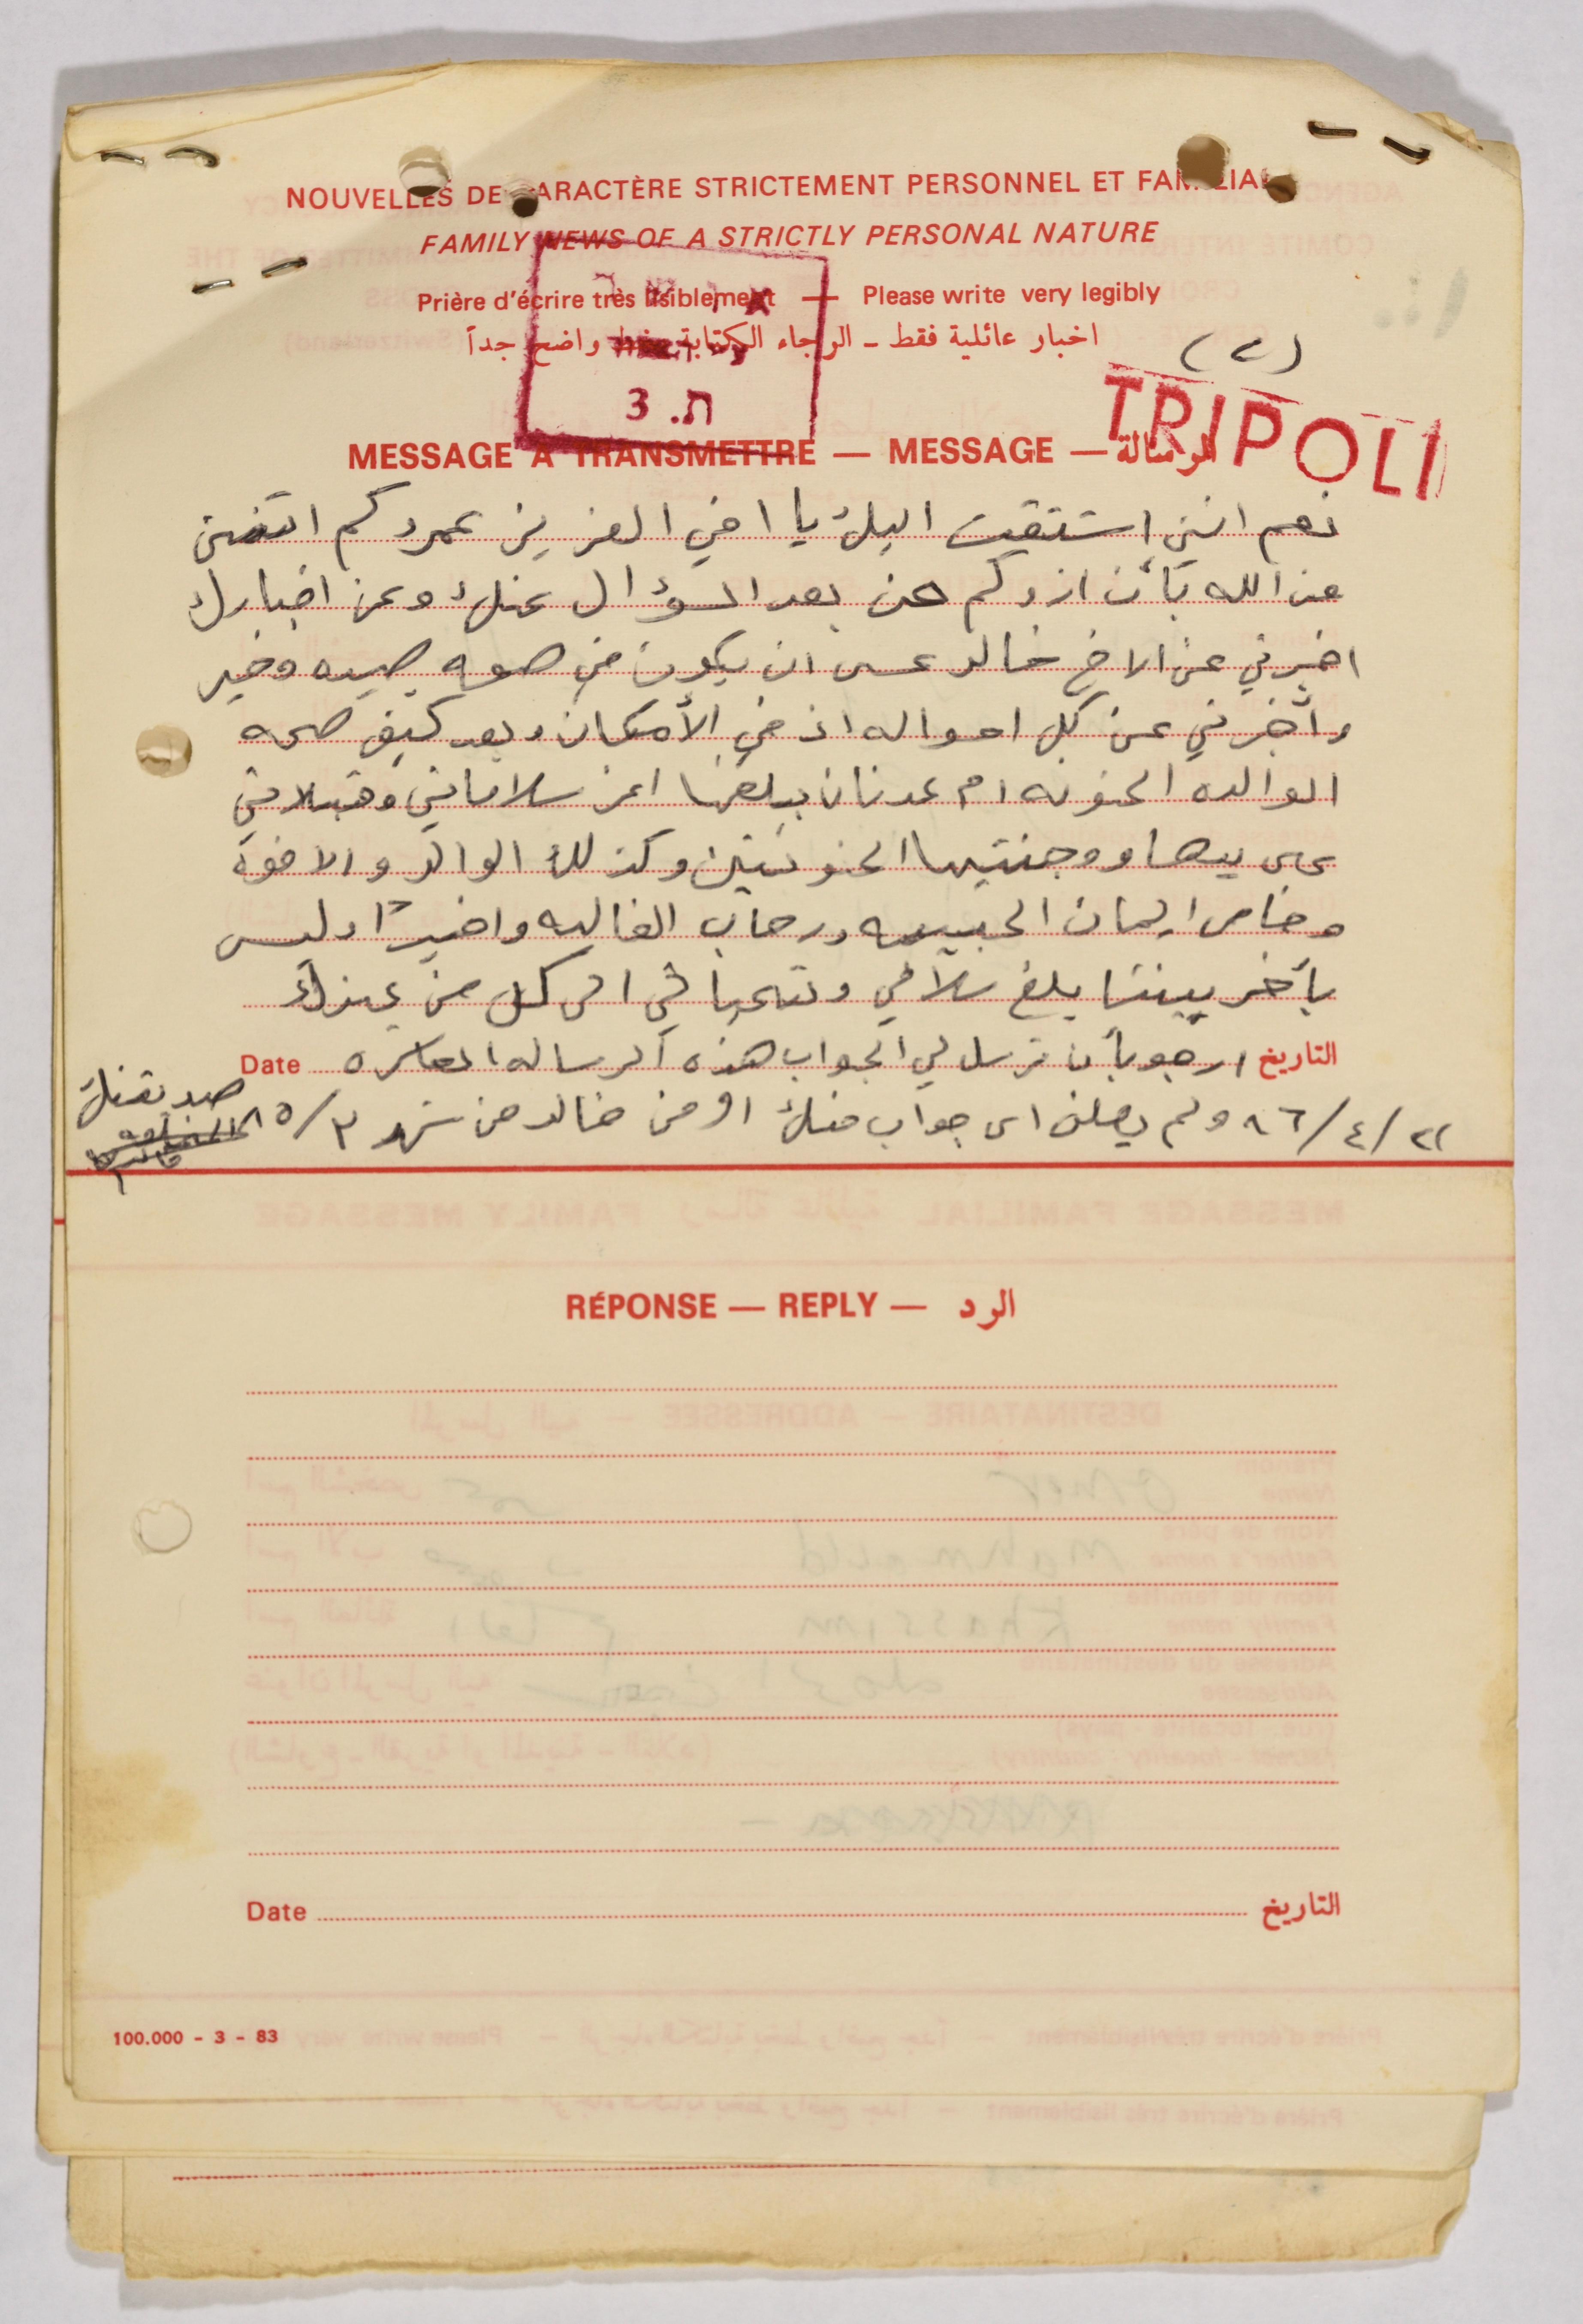 NOUVELLES DE CARACTÈRE STRICTEMENT PERSONNEL ET FAMILIAL
FAMILY NEWS OF A STRICTLY PERSONAL NATURE
Prière d'écrire très lisiblement — Please write very legibly
اخبار عائلية فقط - الرجاء الكتابة بخط واضح جداً
(٢)
3 .ת
TRIPOLI
MESSAGE A TRANSMETTRE — MESSAGE — الرسالة
نعم انني اشتقت اليك يا اخي العزيز عمر وكم اتمنى
من الله بأن ازوركم من بعد السؤال عنك وعن اخبارك
اخبرني عن الاخ خالد عسى ان يكون في صحه جيده وخير
وأخبرني عن كل احواله اذ في الأمكان وبعد كيف صحه
الوالده الحنونه ام عدنان بلغها اعز سلاماتي وقبلاتي
على يديها ووجنتيها الحنونتين وكذلك الوالد والاخوة
وخاص ايمان الحبيبه ورحاب الغاليه واخيرًا وليس
بأخر بيننا بلغ سلامي وتحياتي الى كل من عندك
التاريخ ارجو بأن ترسل لي الجواب هذه الرساله العاشره Date
٢٢/٤/٨٦ ولم يصلني اى جواب منك او من خالد من شهر ٣/٨٥ صديقتك
RÉPONSE — REPLY — الرد
Date التاريخ
100.000 - 3 - 83